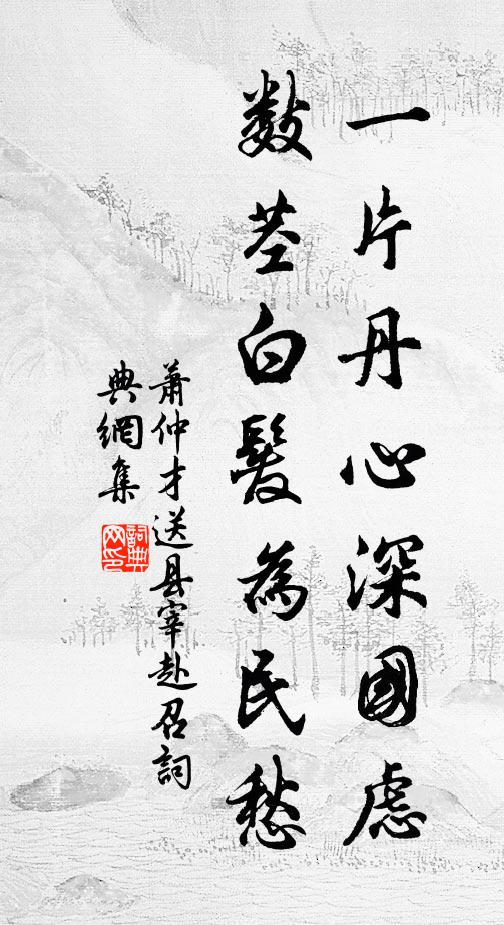 一片丹心深國慮
數茎白髮為民愁
蕭仲才送县宰赴召詞
典網集
詞典网印